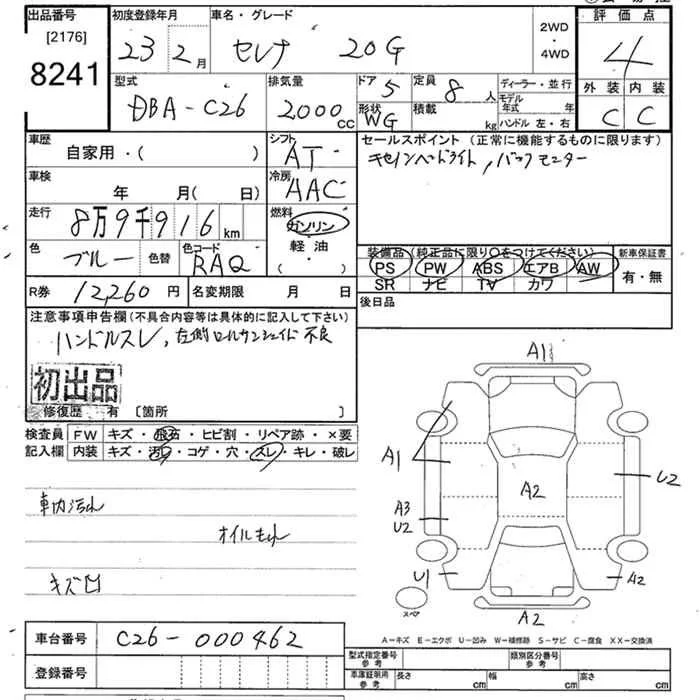 出品番号 初度登録年月 車名・グレード 2WD・4WD 評価点
[2176]
8241
23 2月 セレナ 20G 4
型式 排気量 ドア 定員 ディーラー・並行 外装 内装
DBA-C26 2000cc 5 8人 モデル年式 年 C C
形状 積載 ハンドル 左・右
WG kg
車歴 シフト セールスポイント(正常に機能するものに限ります)
自家用・( ) AT キセノンヘッドライト,バックモニター
車検 冷房
年 月( 日) AAC
走行 燃料
8万9千916km ガソリン
色 色コード 軽油
ブルー 色替 RAQ (・)
装備品(純正品に限り○をつけてください) 新車保証書
PS PW ABS エアB AW 有・無
SR ナビ TV カワ
R券 12,260円 名変期限 月 日 後日品
注意事項申告欄(不具合内容等は具体的に記入して下さい)
ハンドルスレ,左側ロールサンシェイド不良
初出品
修復歴 有 〔箇所 〕
検査員 FW キズ・飛石・ヒビ割・リペア跡・×要
記入欄 内装 キズ・汚れ・コゲ・穴・スレ・キレ・破レ
車内汚れ
オイルもれ
キズ凹
A1
A1
U2
A2
A3
U2
U1
A2
スペア
A2
A-キズ E-エクボ U-凹み W-補修跡 S-サビ C-腐食 XX-交換済
車台番号 C26-000462
型式指定番号 参考 類別区分番号 参考
登録番号
車庫証明用 参考 長さ cm 幅 cm 高さ cm